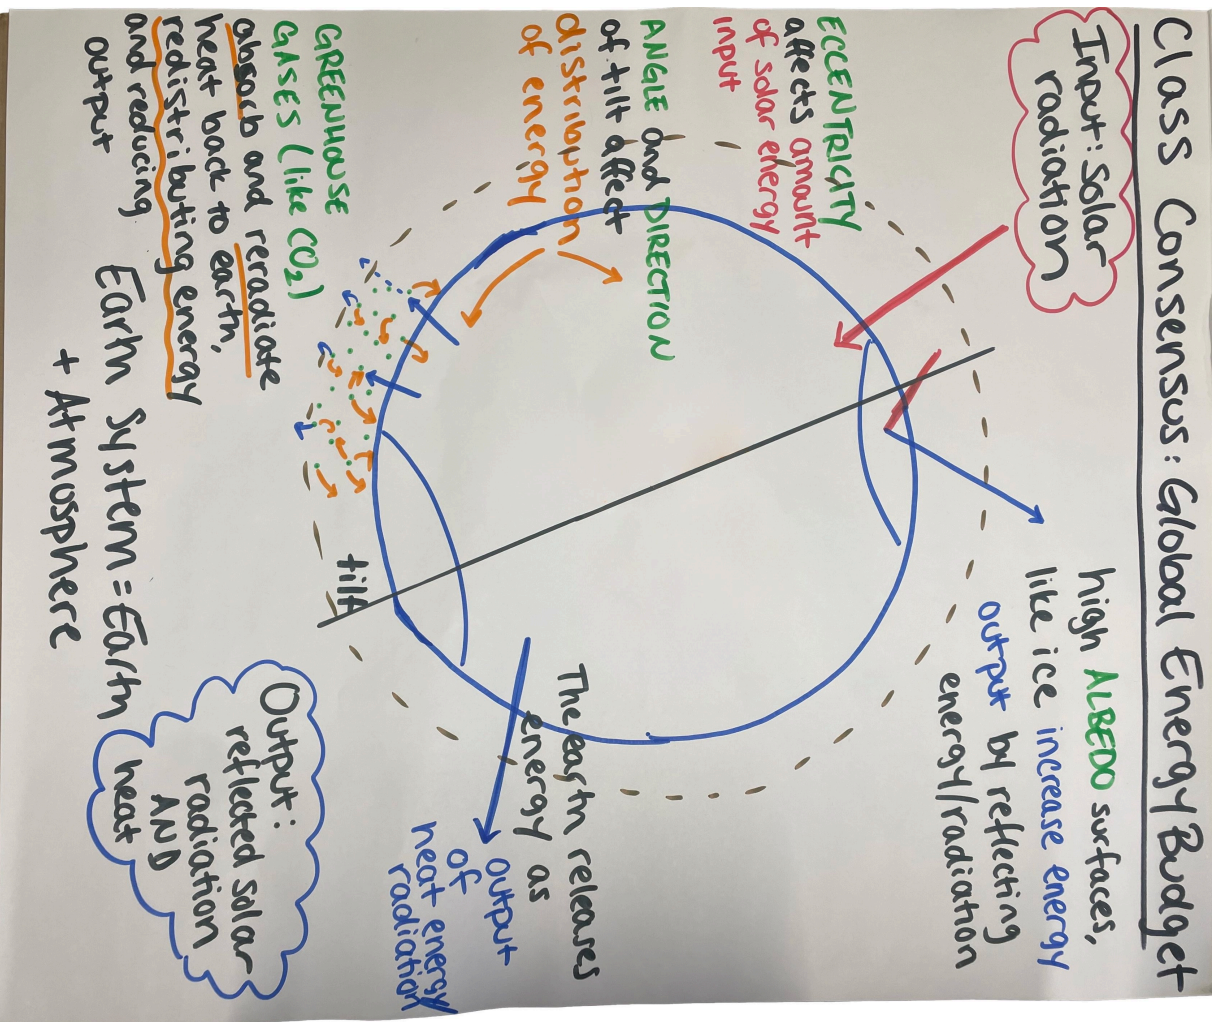 Class Consensus: Global Energy Budget
Input: Solar
radiation
ECCENTRICITY
affects amount
of solar energy
input
ANGLE and DIRECTION
of tilt affect
distribution
of energy
GREENHOUSE
GASES (like CO₂)
absorb and reradiate
heat back to earth,
redistributing energy
and reducing
output
high ALBEDO surfaces,
like ice increase energy
output by reflecting
energy/radiation
The earth releases
energy as
output
of
heat energy
radiation
tilt
Earth System = Earth
+ Atmosphere
Output:
reflected solar
radiation
AND
heat